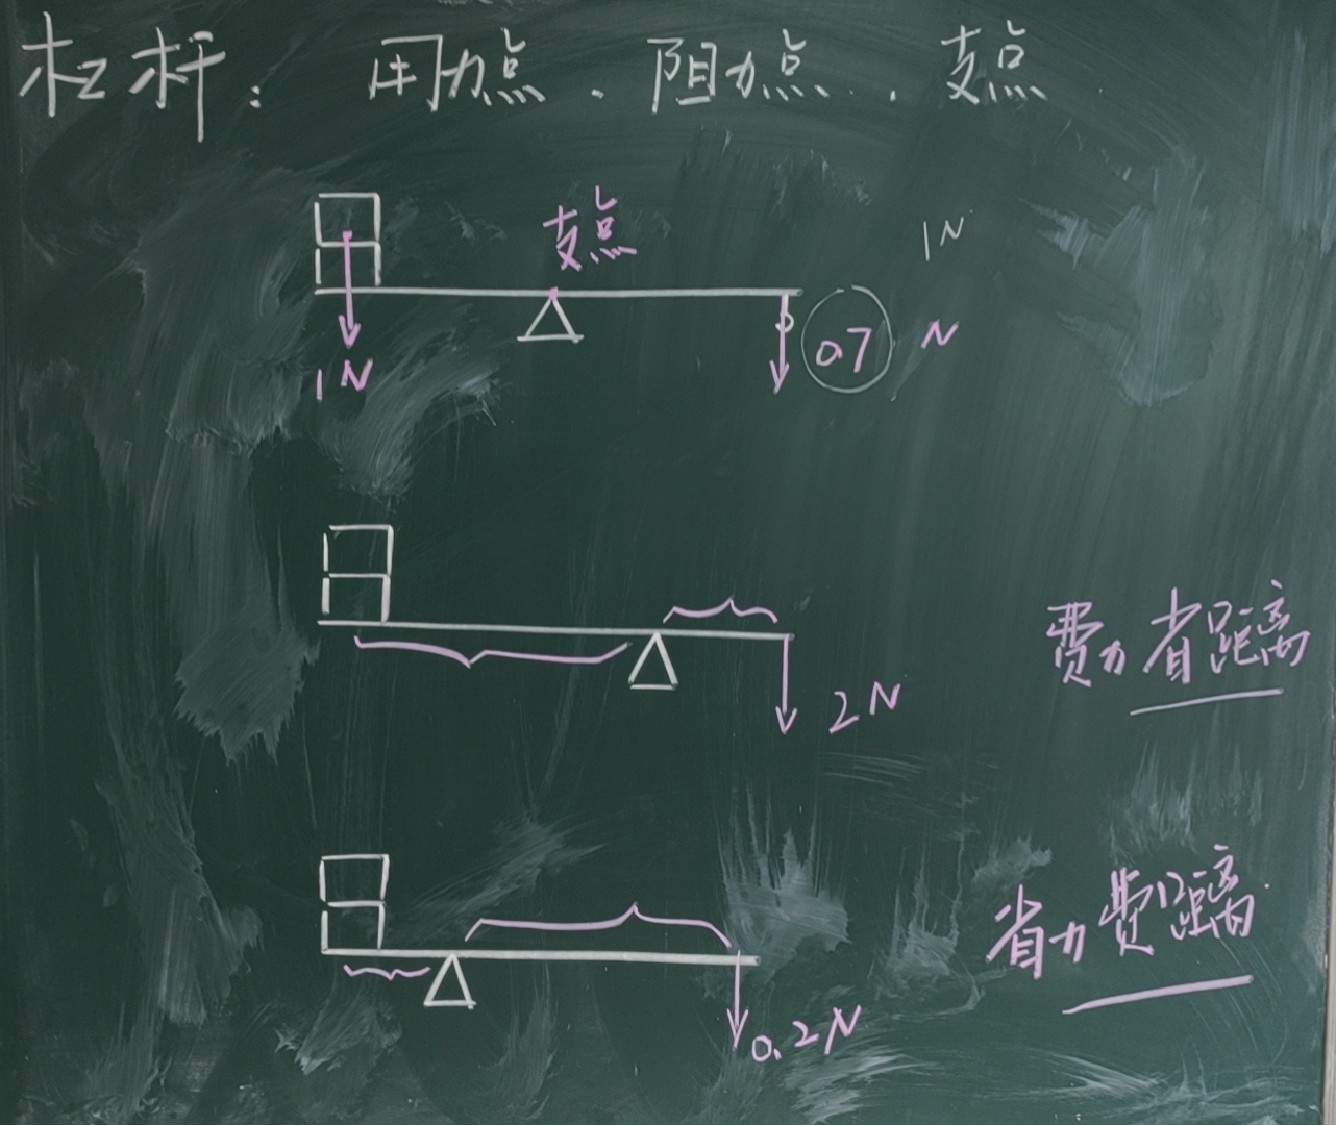 杠杆：用力点、阻力点、支点
支点
1N
1N
0.7 N
2N
费力省距离
省力费距离
0.2N